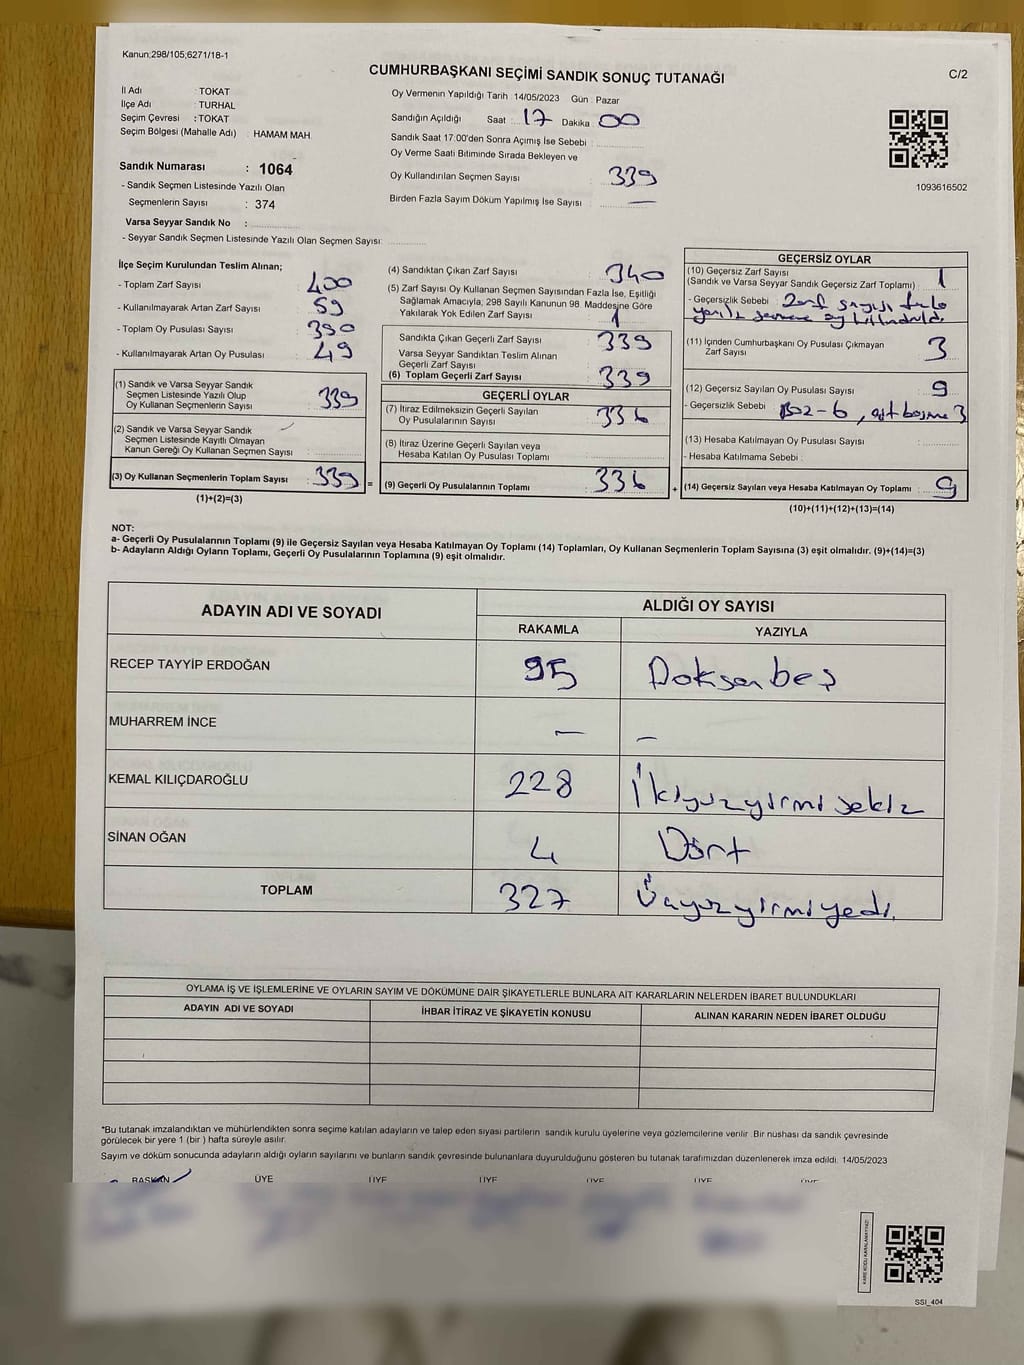 Kanun;298/105;6271/18-1
CUMHURBAŞKANI SEÇİMİ SANDIK SONUÇ TUTANAĞI
C/2
İl Adı : TOKAT
İlçe Adı : TURHAL
Seçim Çevresi : TOKAT
Seçim Bölgesi (Mahalle Adı) : HAMAM MAH.
Sandık Numarası : 1064
- Sandık Seçmen Listesinde Yazılı Olan
Seçmenlerin Sayısı : 374
Varsa Seyyar Sandık No :
- Seyyar Sandık Seçmen Listesinde Yazılı Olan Seçmen Sayısı:
Oy Vermenin Yapıldığı Tarih : 14/05/2023 Gün : Pazar
Sandığın Açıldığı Saat : 17 Dakika : 00
Sandık Saat 17:00'den Sonra Açımış İse Sebebi :
Oy Verme Saati Bitiminde Sırada Bekleyen ve
Oy Kullandırılan Seçmen Sayısı : 339
Birden Fazla Sayım Döküm Yapılmış İse Sayısı : —
1093616502
İlçe Seçim Kurulundan Teslim Alınan;
- Toplam Zarf Sayısı : 400
- Kullanılmayarak Artan Zarf Sayısı : 59
- Toplam Oy Pusulası Sayısı : 390
- Kullanılmayarak Artan Oy Pusulası : 49
(1) Sandık ve Varsa Seyyar Sandık
Seçmen Listesinde Yazılı Olup
Oy Kullanan Seçmenlerin Sayısı : 339
(2) Sandık ve Varsa Seyyar Sandık
Seçmen Listesinde Kayıtlı Olmayan
Kanun Gereği Oy Kullanan Seçmen Sayısı :
(3) Oy Kullanan Seçmenlerin Toplam Sayısı : 339 =
(1)+(2)=(3)
(4) Sandıktan Çıkan Zarf Sayısı : 340
(5) Zarf Sayısı Oy Kullanan Seçmen Sayısından Fazla İse, Eşitliği
Sağlamak Amacıyla, 298 Sayılı Kanunun 98. Maddesine Göre
Yakılarak Yok Edilen Zarf Sayısı : 1
Sandıkta Çıkan Geçerli Zarf Sayısı : 339
Varsa Seyyar Sandıktan Teslim Alınan
Geçerli Zarf Sayısı
(6) Toplam Geçerli Zarf Sayısı : 339
GEÇERLİ OYLAR
(7) İtiraz Edilmeksizin Geçerli Sayılan
Oy Pusulalarının Sayısı : 336
(8) İtiraz Üzerine Geçerli Sayılan veya
Hesaba Katılan Oy Pusulası Toplamı :
(9) Geçerli Oy Pusulalarının Toplamı : 336 +
GEÇERSİZ OYLAR
(10) Geçersiz Zarf Sayısı
(Sandık ve Varsa Seyyar Sandık Geçersiz Zarf Toplamı) : 1
- Geçersizlik Sebebi : Zarf sayısı
(11) İçinden Cumhurbaşkanı Oy Pusulası Çıkmayan
Zarf Sayısı : 3
(12) Geçersiz Sayılan Oy Pusulası Sayısı : 9
- Geçersizlik Sebebi :
(13) Hesaba Katılmayan Oy Pusulası Sayısı :
- Hesaba Katılmama Sebebi :
(14) Geçersiz Sayılan veya Hesaba Katılmayan Oy Toplamı : 9
(10)+(11)+(12)+(13)=(14)
NOT:
a- Geçerli Oy Pusulalarının Toplamı (9) ile Geçersiz Sayılan veya Hesaba Katılmayan Oy Toplamı (14) Toplamları, Oy Kullanan Seçmenlerin Toplam Sayısına (3) eşit olmalıdır. (9)+(14)=(3)
b- Adayların Aldığı Oyların Toplamı, Geçerli Oy Pusulalarının Toplamına (9) eşit olmalıdır.
ADAYIN ADI VE SOYADI
ALDIĞI OY SAYISI
RAKAMLA YAZIYLA
RECEP TAYYİP ERDOĞAN 95 Doksanbeş
MUHARREM İNCE — —
KEMAL KILIÇDAROĞLU 228 İkiyuzyirmisekiz
SİNAN OĞAN 4 Dört
TOPLAM 327 Üçyuzyirmiyedi.
OYLAMA İŞ VE İŞLEMLERİNE VE OYLARIN SAYIM VE DÖKÜMÜNE DAİR ŞİKAYETLERLE BUNLARA AİT KARARLARIN NELERDEN İBARET BULUNDUKLARI
ADAYIN ADI VE SOYADI İHBAR İTİRAZ VE ŞİKAYETİN KONUSU ALINAN KARARIN NEDEN İBARET OLDUĞU
*Bu tutanak imzalandıktan ve mühürlendikten sonra seçime katılan adayların ve talep eden siyasi partilerin sandık kurulu üyelerine veya gözlemcilerine verilir. Bir nushası da sandık çevresinde
görülecek bir yere 1 (bir ) hafta süreyle asılır.
Sayım ve döküm sonucunda adayların aldığı oyların sayılarını ve bunların sandık çevresinde bulunanlara duyurulduğunu gösteren bu tutanak tarafımızdan düzenlenerek imza edildi. 14/05/2023
BAŞKAN ÜYE ÜYE ÜYE ÜYE ÜYE ÜYE
KARE KODU KARALAMAYINIZ!
SSI_404